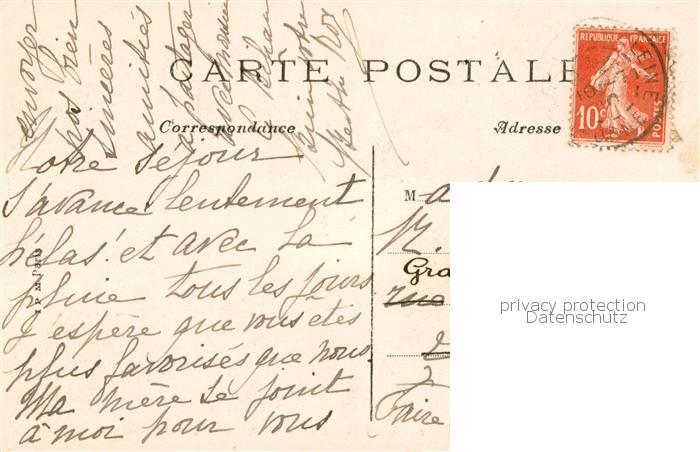 CARTE POSTALE
Correspondance
Adresse
REPUBLIQUE FRANÇAISE
10c
POSTES
Notre séjour
s'avance lentement
hélas! et avec la
pluie tous les jours
J'espère que vous etes
plus favorisés que nous.
Ma mère se joint
à moi pour vous
envoyer
nos bien
sincères
amitiés
à partager
M
Gra
rue
Faire
I P M Paris
privacy protection
Datenschutz